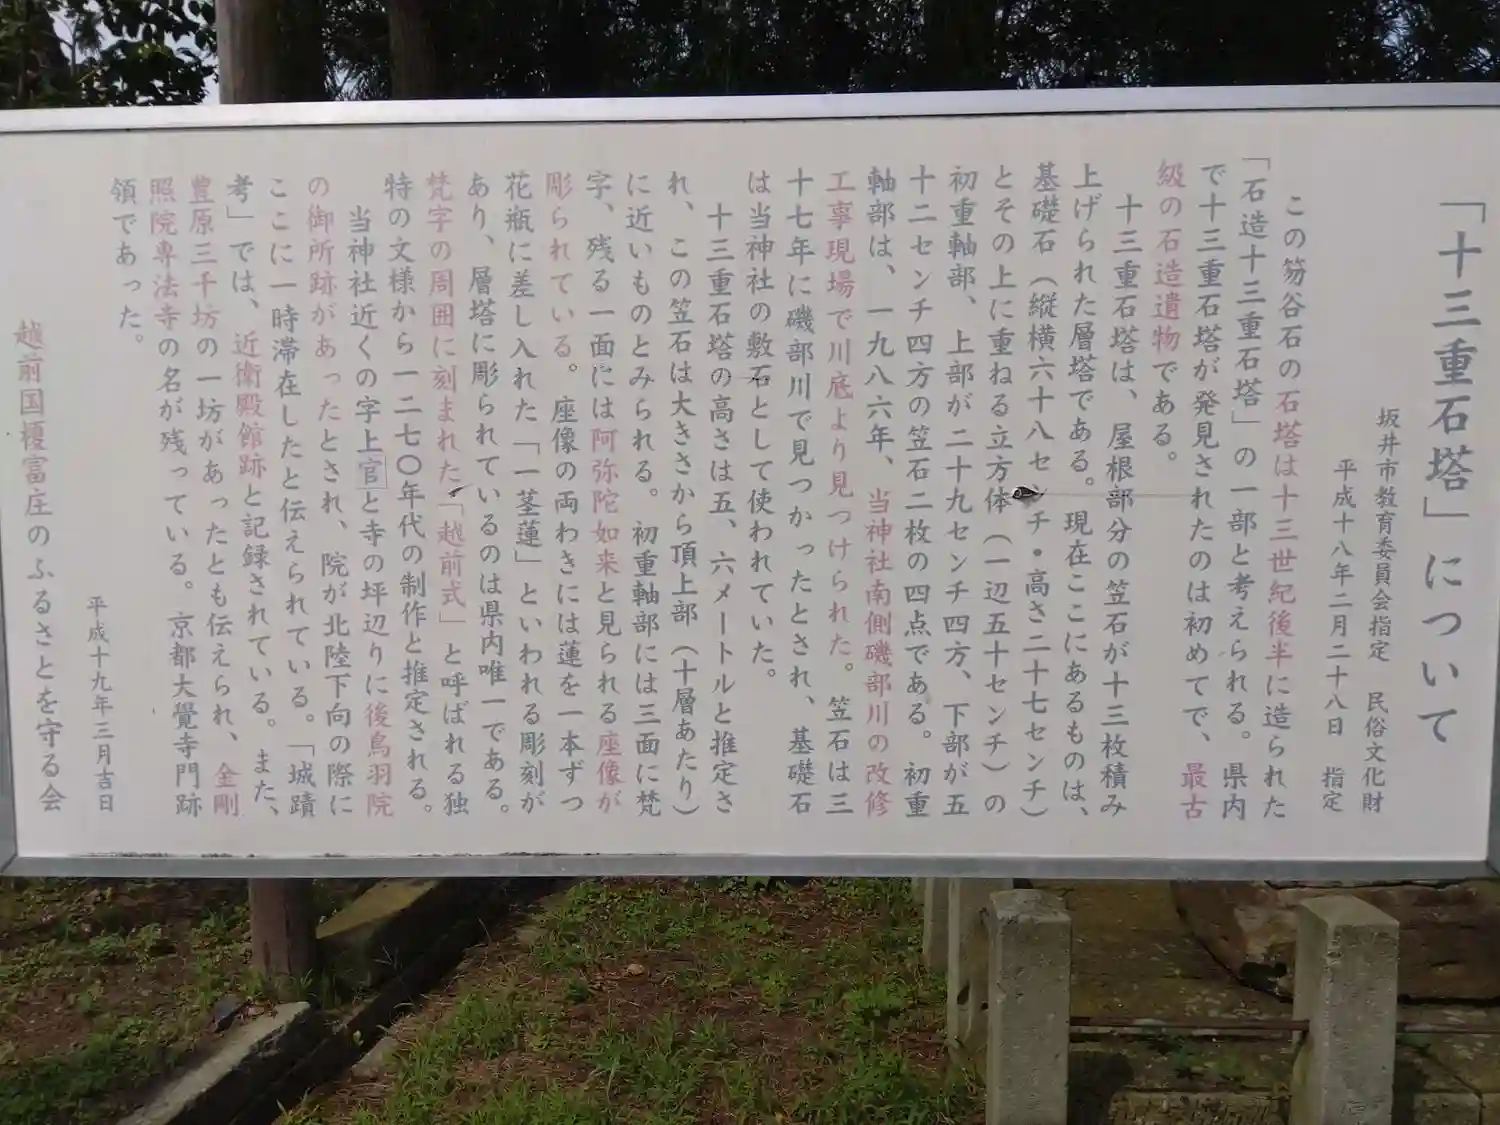 「十三重石塔」について
坂井市教育委員会指定　民俗文化財
平成十八年二月二十八日　指定
この笏谷石の石塔は十三世紀後半に造られた
「石造十三重石塔」の一部と考えられる。県内
で十三重石塔が発見されたのは初めてで、最古
級の石造遺物である。
十三重石塔は、屋根部分の笠石が十三枚積み
上げられた層塔である。現在ここにあるものは、
基礎石（縦横六十八センチ・高さ二十七センチ）
とその上に重ねる立方体（一辺五十センチ）の
初重軸部、上部が二十九センチ四方、下部が五
十二センチ四方の笠石二枚の四点である。初重
軸部は、一九八六年、当神社南側磯部川の改修
工事現場で川底より見つけられた。笠石は三
十七年に磯部川で見つかったとされ、基礎石
は当神社の敷石として使われていた。
十三重石塔の高さは五、六メートルと推定さ
れ、この笠石は大きさから頂上部（十層あたり）
に近いものとみられる。初重軸部には三面に梵
字、残る一面には阿弥陀如来と見られる座像が
彫られている。座像の両わきには蓮を一本ずつ
花瓶に差し入れた「一茎蓮」といわれる彫刻が
あり、層塔に彫られているのは県内唯一である。
梵字の周囲に刻まれた「越前式」と呼ばれる独
特の文様から一二七〇年代の制作と推定される。
当神社近くの字上官と寺の坪辺りに後鳥羽院
の御所跡があったとされ、院が北陸下向の際に
ここに一時滞在したと伝えられている。「城蹟
考」では、近衛殿館跡と記録されている。また、
豊原三千坊の一坊があったとも伝えられ、金剛
照院専法寺の名が残っている。京都大覺寺門跡
領であった。
平成十九年三月吉日
越前国榎富庄のふるさとを守る会